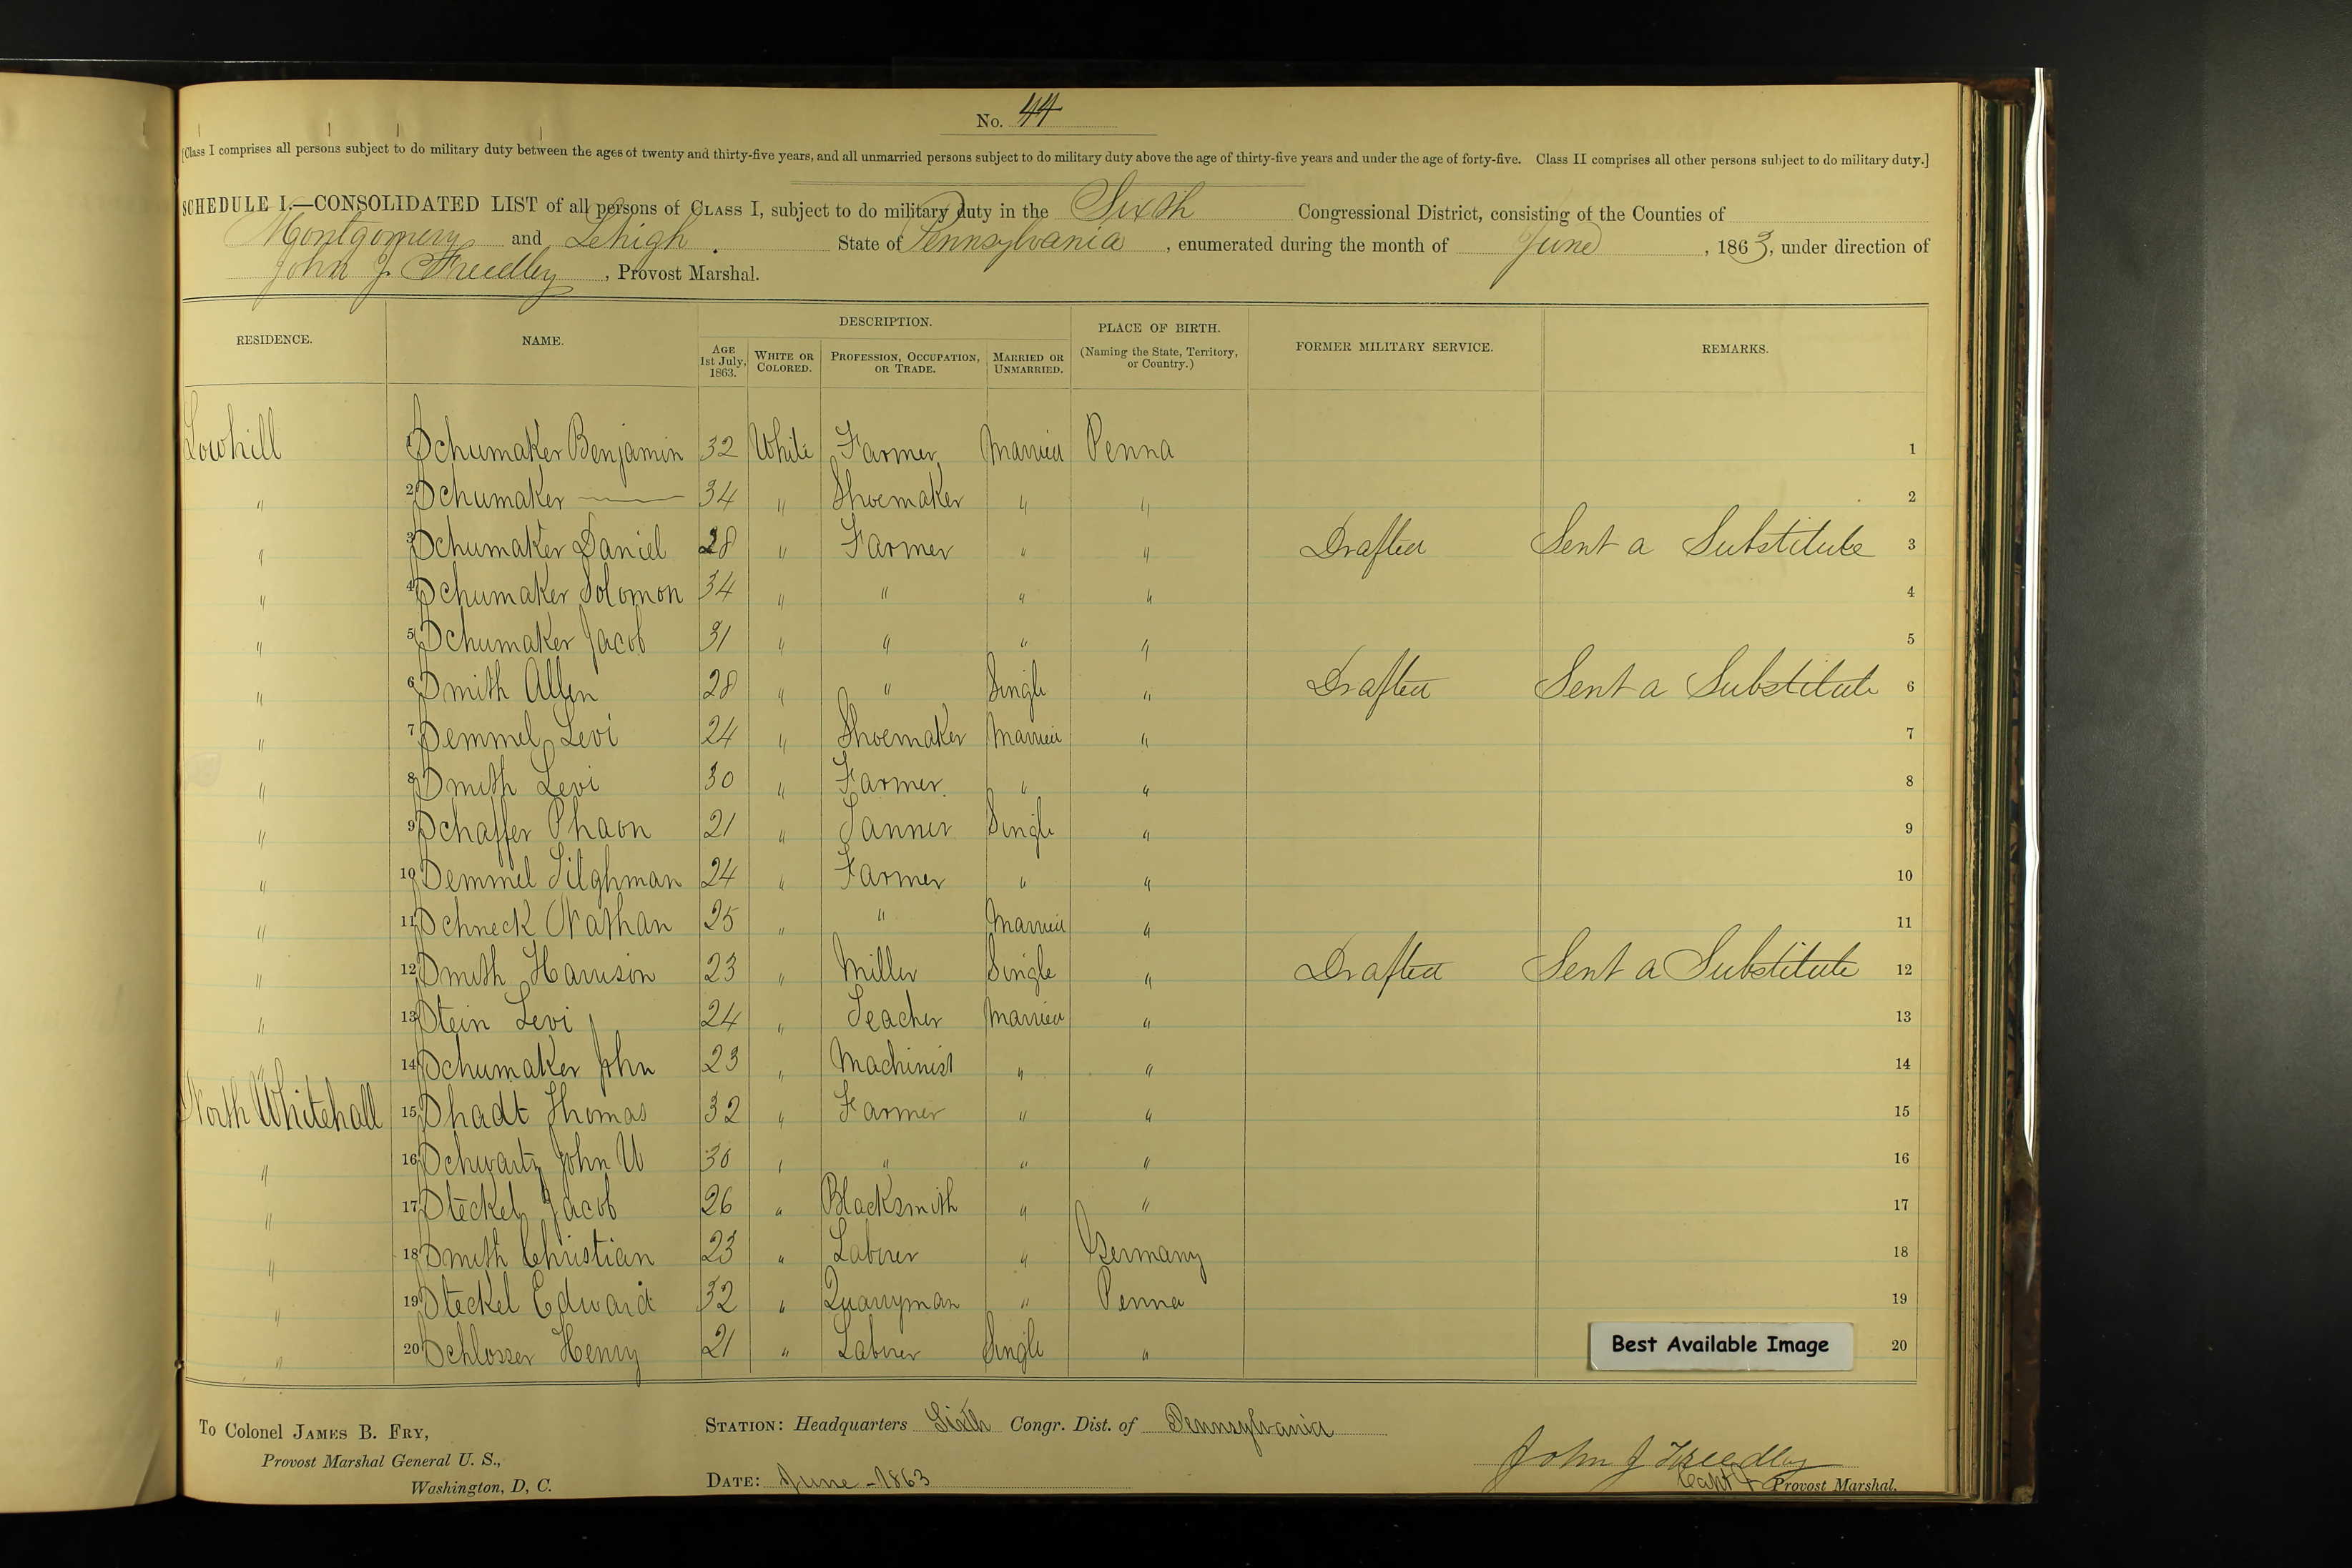 No. 44
[Class I comprises all persons subject to do military duty between the ages of twenty and thirty-five years, and all unmarried persons subject to do military duty above the age of thirty-five years and under the age of forty-five. Class II comprises all other persons subject to do military duty.]
SCHEDULE I.—CONSOLIDATED LIST of all persons of CLASS I, subject to do military duty in the Sixth Congressional District, consisting of the Counties of
Montgomery and Lehigh. State of Pennsylvania, enumerated during the month of June, 1863, under direction of
John J. Freedley, Provost Marshal.
RESIDENCE. NAME. DESCRIPTION. PLACE OF BIRTH. (Naming the State, Territory, or Country.) FORMER MILITARY SERVICE. REMARKS.
AGE 1st July, 1863. WHITE OR COLORED. PROFESSION, OCCUPATION, OR TRADE. MARRIED OR UNMARRIED.
Lowhill 1 Schumaker Benjamin 32 White Farmer Married Penna 1
" 2 Schumaker —— 34 " Shoemaker " " 2
" 3 Schumaker Daniel 28 " Farmer " " Drafted Sent a Substitute 3
" 4 Schumaker Solomon 34 " " " " 4
" 5 Schumaker Jacob 31 " " " " 5
" 6 Smith Allen 28 " " Single " Drafted Sent a Substitute 6
" 7 Semmel Levi 24 " Shoemaker Married " 7
" 8 Smith Levi 30 " Farmer " " 8
" 9 Schaffer Phaon 21 " Tanner Single " 9
" 10 Semmel Tilghman 24 " Farmer " " 10
" 11 Schneck Nathan 25 " " Married " 11
" 12 Smith Harrison 23 " Miller Single " Drafted Sent a Substitute 12
" 13 Stein Levi 24 " Teacher Married " 13
" 14 Schumaker John 23 " Machinist " " 14
North Whitehall 15 Shadt Thomas 32 " Farmer " " 15
" 16 Schwartz John U 30 " " " " 16
" 17 Steckel Jacob 26 " Blacksmith " " 17
" 18 Smith Christian 23 " Laborer " Germany 18
" 19 Steckel Edward 32 " Quarryman " Penna 19
" 20 Schlosser Henry 21 " Laborer Single " 20
Best Available Image
To Colonel JAMES B. FRY,
Provost Marshal General U. S.,
Washington, D, C.
STATION: Headquarters Sixth Congr. Dist. of Pennsylvania
DATE: June - 1863
John J Freedley
Capt & Provost Marshal.